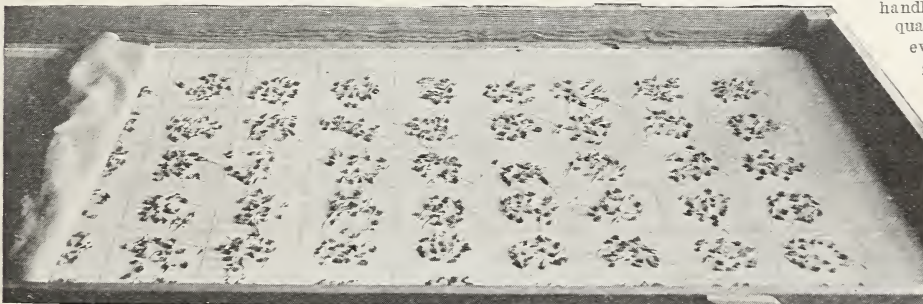 handl
qua
ev